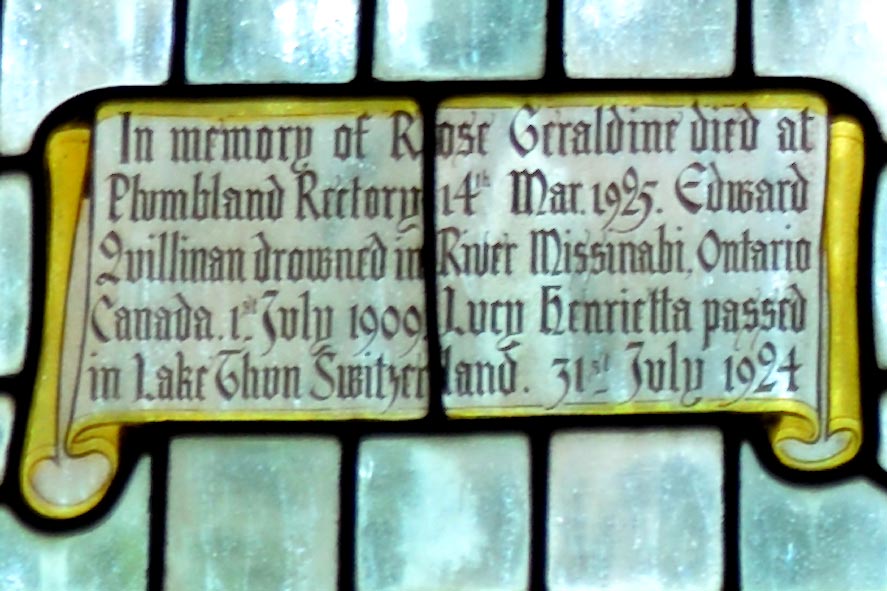 In memory of Rose Geraldine died at
Plumbland Rectory 14th Mar. 1925. Edward
Quillinan drowned in River Missinabi, Ontario
Canada. 1st July 1909. Lucy Henrietta passed
in Lake Thun Switzerland. 31st July 1924